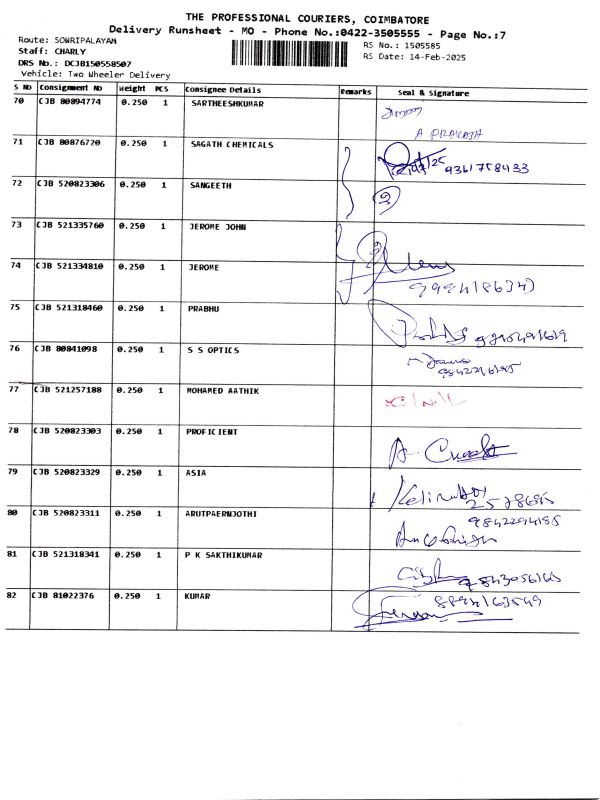 THE PROFESSIONAL COURIERS, COIMBATORE
Delivery Runsheet - MO - Phone No.:0422-3505555 - Page No.:7
Route: SOWRIPALAYAM
Staff: CHARLY
DRS No.: DCJB150558507
Vehicle: Two Wheeler Delivery
RS No.: 1505585
RS Date: 14-Feb-2025
S NO Consignment NO Weight PCS Consignee Details Remarks Seal & Signature
70 CJB 80894774 0.250 1 SARTHEESHKUMAR
71 CJB 80876720 0.250 1 SAGATH CHEMICALS
9361758433
72 CJB 520823306 0.250 1 SANGEETH
73 CJB 521335760 0.250 1 JEROME JOHN
74 CJB 521334810 0.250 1 JEROME
75 CJB 521318460 0.250 1 PRABHU
76 CJB 80841098 0.250 1 S S OPTICS
77 CJB 521257188 0.250 1 MOHAMED AATHIK
78 CJB 520823303 0.250 1 PROFICIENT
79 CJB 520823329 0.250 1 ASIA
80 CJB 520823311 0.250 1 ARUTPAERNJOTHI
81 CJB 521318341 0.250 1 P K SAKTHIKUMAR
82 CJB 81022376 0.250 1 KUMAR